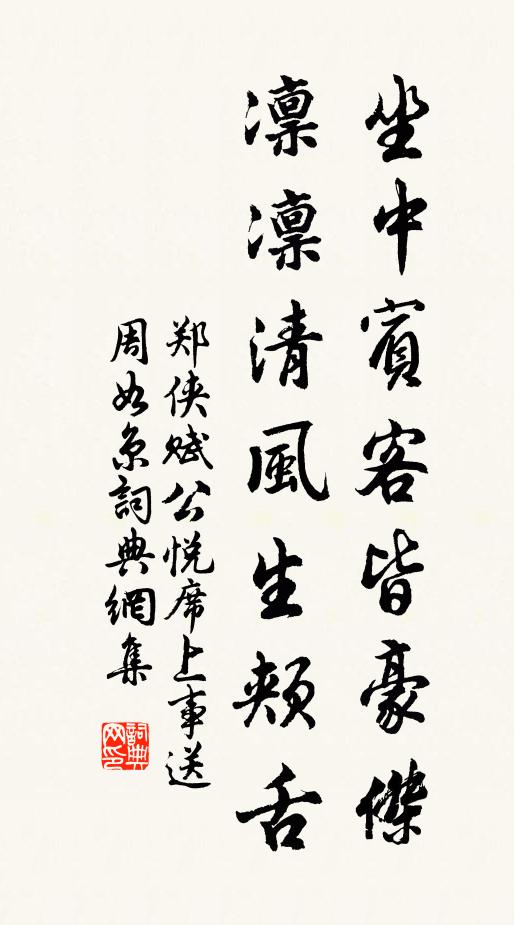 坐中賓客皆豪傑
凛凛清風生頰舌
郑侠赋公悦席上事送
周如京詞典網集
詞典网印